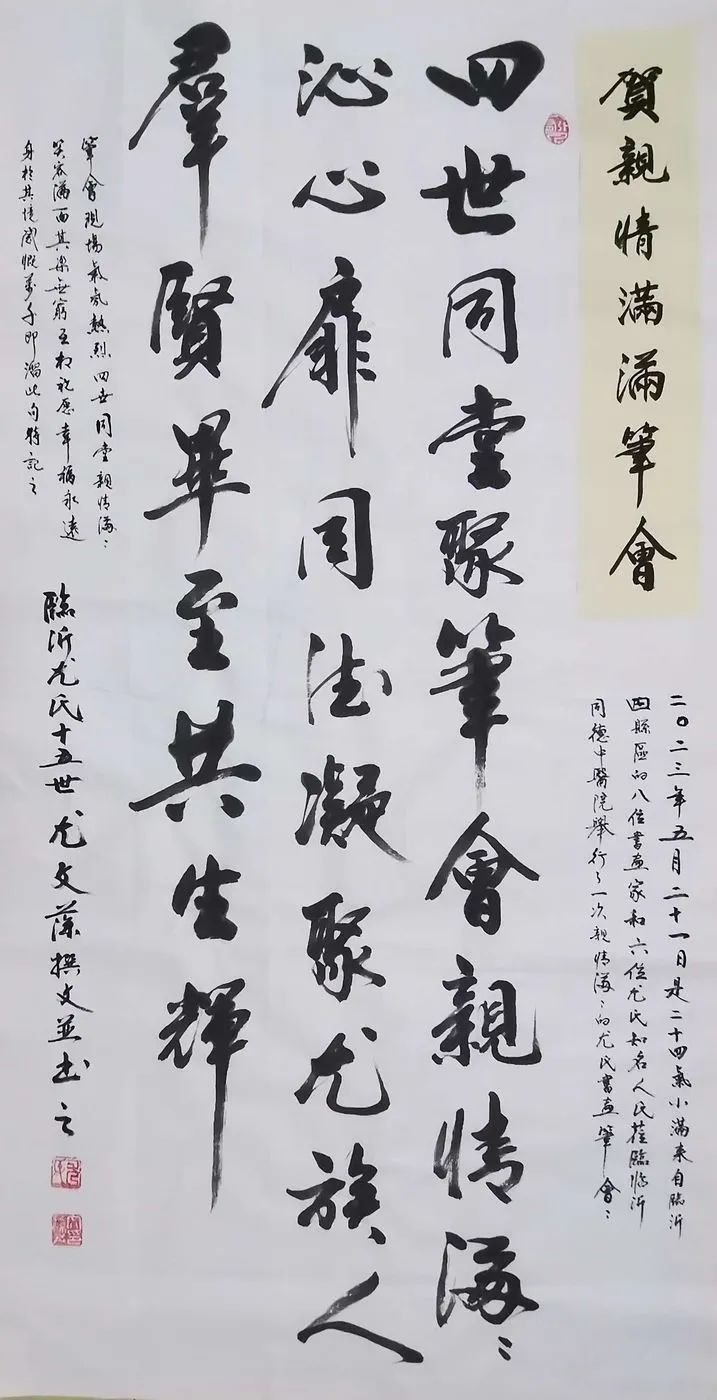 賀親情滿滿筆會
二〇二三年五月二十一日是二十四氣小滿来自臨沂
四縣區的八位書畫家和六位尤氏知名人氏莅臨臨沂
同德中醫院舉行了一次親情滿〻的尤氏書畫筆會〻
四世同堂聚筆會親情滿〻
沁心扉同德凝聚尤族人
羣賢畢至共生輝
筆會現場氣氛熱烈四世同堂親情滿〻
笑容滿面其樂無窮互相祝愿幸福永遠
身於其境感慨萬千即溜此句特記之
臨沂尤氏十五世尤文藻撰文並书之